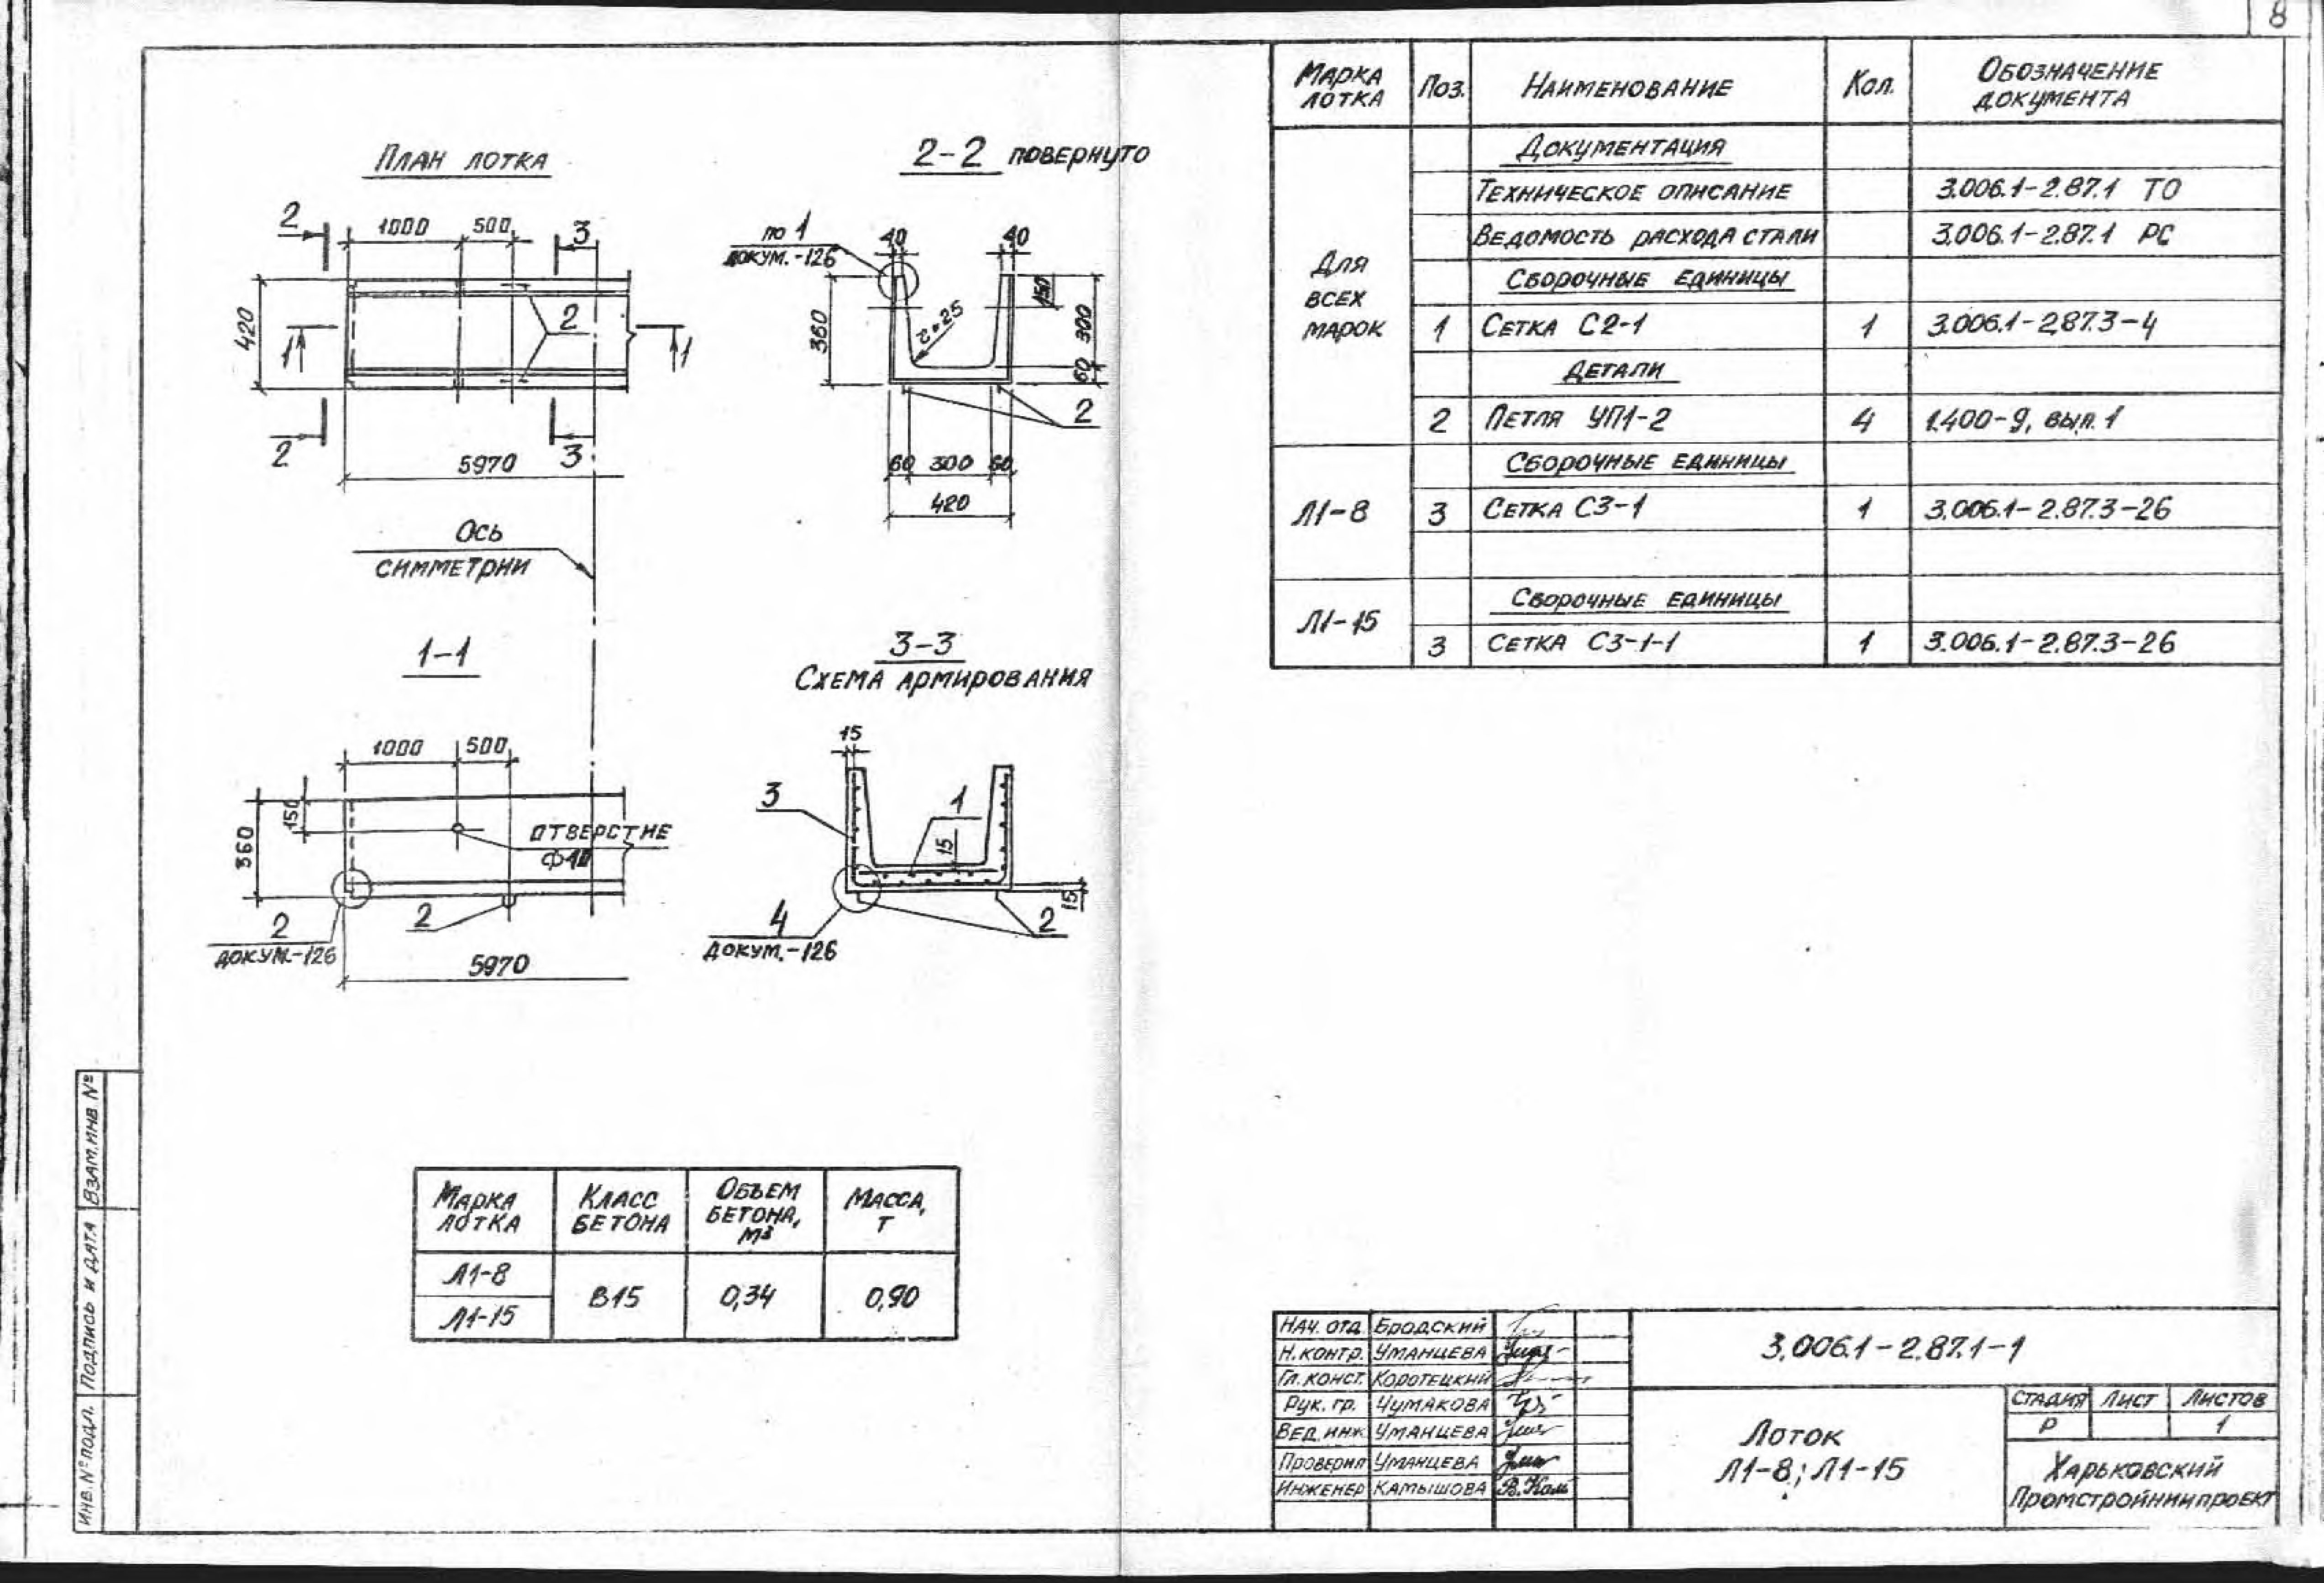 8
План лотка
2
1000
500
3
420
1
2
1
2
5970
3
Ось
симметрии
2-2 повернуто
по 1
докум.-126
40
40
360
r=25
150
300
60
2
60 300 60
420
1-1
1000
500
150
360
отверстие
2
докум.-126
2
5970
3-3
Схема армирования
15
3
1
15
15
4
докум.-126
2
Марка лотка
Класс бетона
Объем бетона, м³
Масса, т
Л1-8
Л1-15
В15
0,34
0,90
Марка лотка
Поз.
Наименование
Кол.
Обозначение документа
Для всех марок
Документация
Техническое описание 3.006.1-2.87.1 ТО
Ведомость расхода стали 3.006.1-2.87.1 РС
Сборочные единицы
1 Сетка С2-1 1 3.006.1-2.87.3-4
Детали
2 Петля УП1-2 4 1.400-9, вып. 1
Л1-8
Сборочные единицы
3 Сетка С3-1 1 3.006.1-2.87.3-26
Л1-15
Сборочные единицы
3 Сетка С3-1-1 1 3.006.1-2.87.3-26
Нач. отд. Бродский
Н. контр. Уманцева
Гл. конст. Коротецкий
Рук. гр. Чумакова
Вед. инж. Уманцева
Проверил Уманцева
Инженер Камышова
3.006.1-2.87.1-1
Лоток
Л1-8; Л1-15
Стадия Лист Листов
Р 1
Харьковский
Промстройниипроект
Взам. инв. №
Подпись и дата
Инв. № подл.